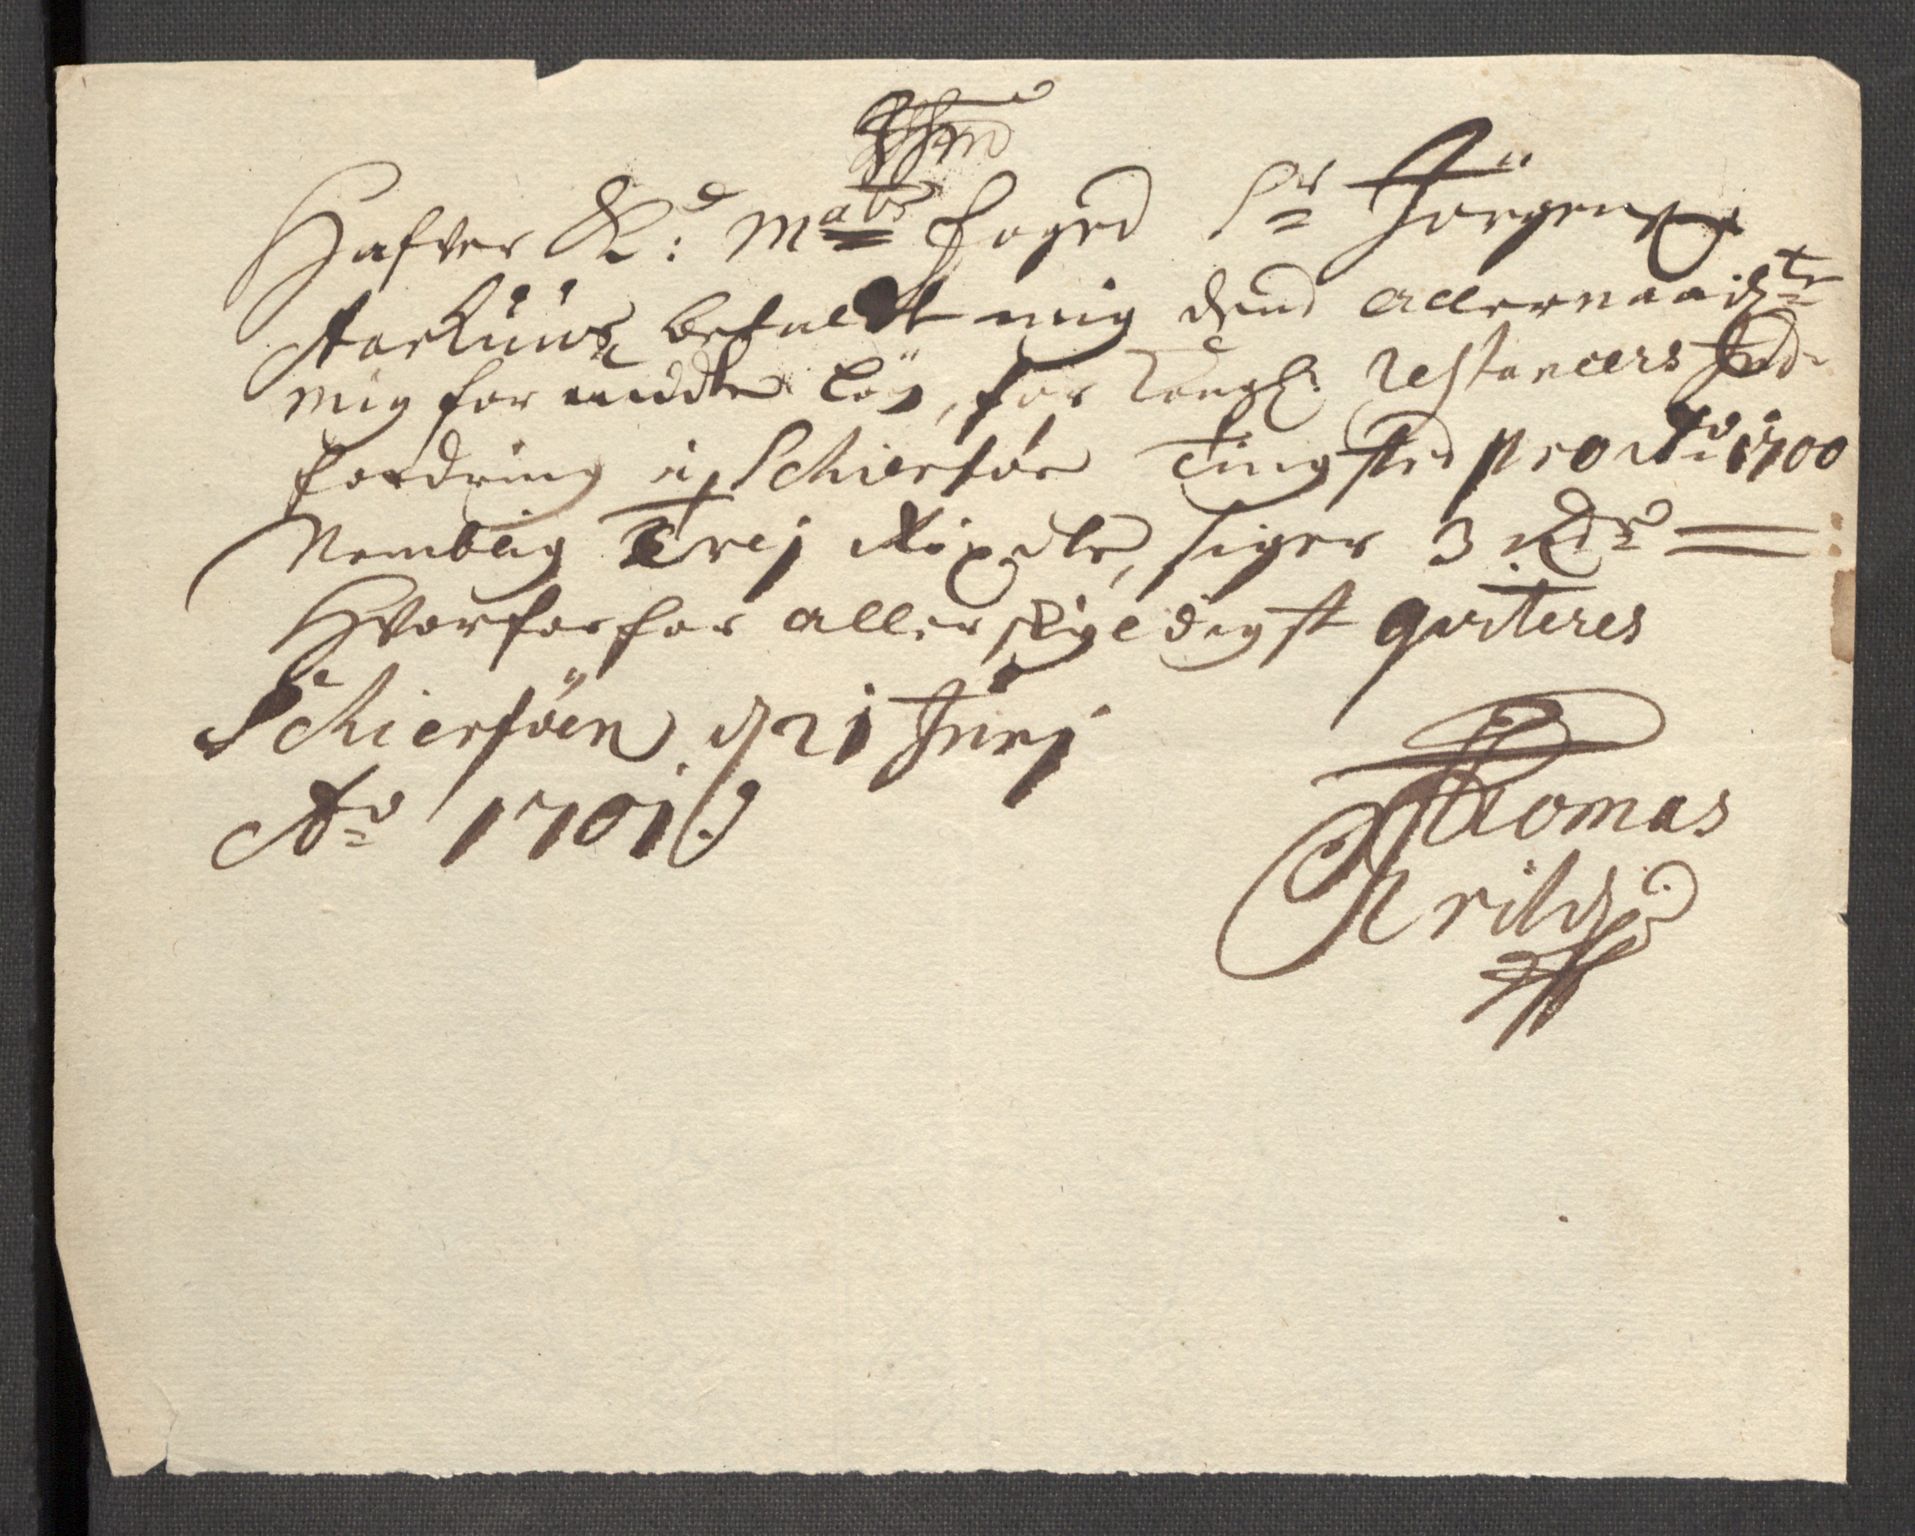 Hafver K: Mats foged Sr Jørgen
Aarhuus betalt mig dend allernaadste
mig for undte Løn, for Kongl: Restancers Ind-
fordring i Schiersøe Tingsted pro Ao 1700
Nemblig Trej Rixdlr, siger 3 Rdr
Hvorfor her allerskyldigst qviteres
Schiersøen d 21 Junj
Ao 1701
Thomas
Arilds